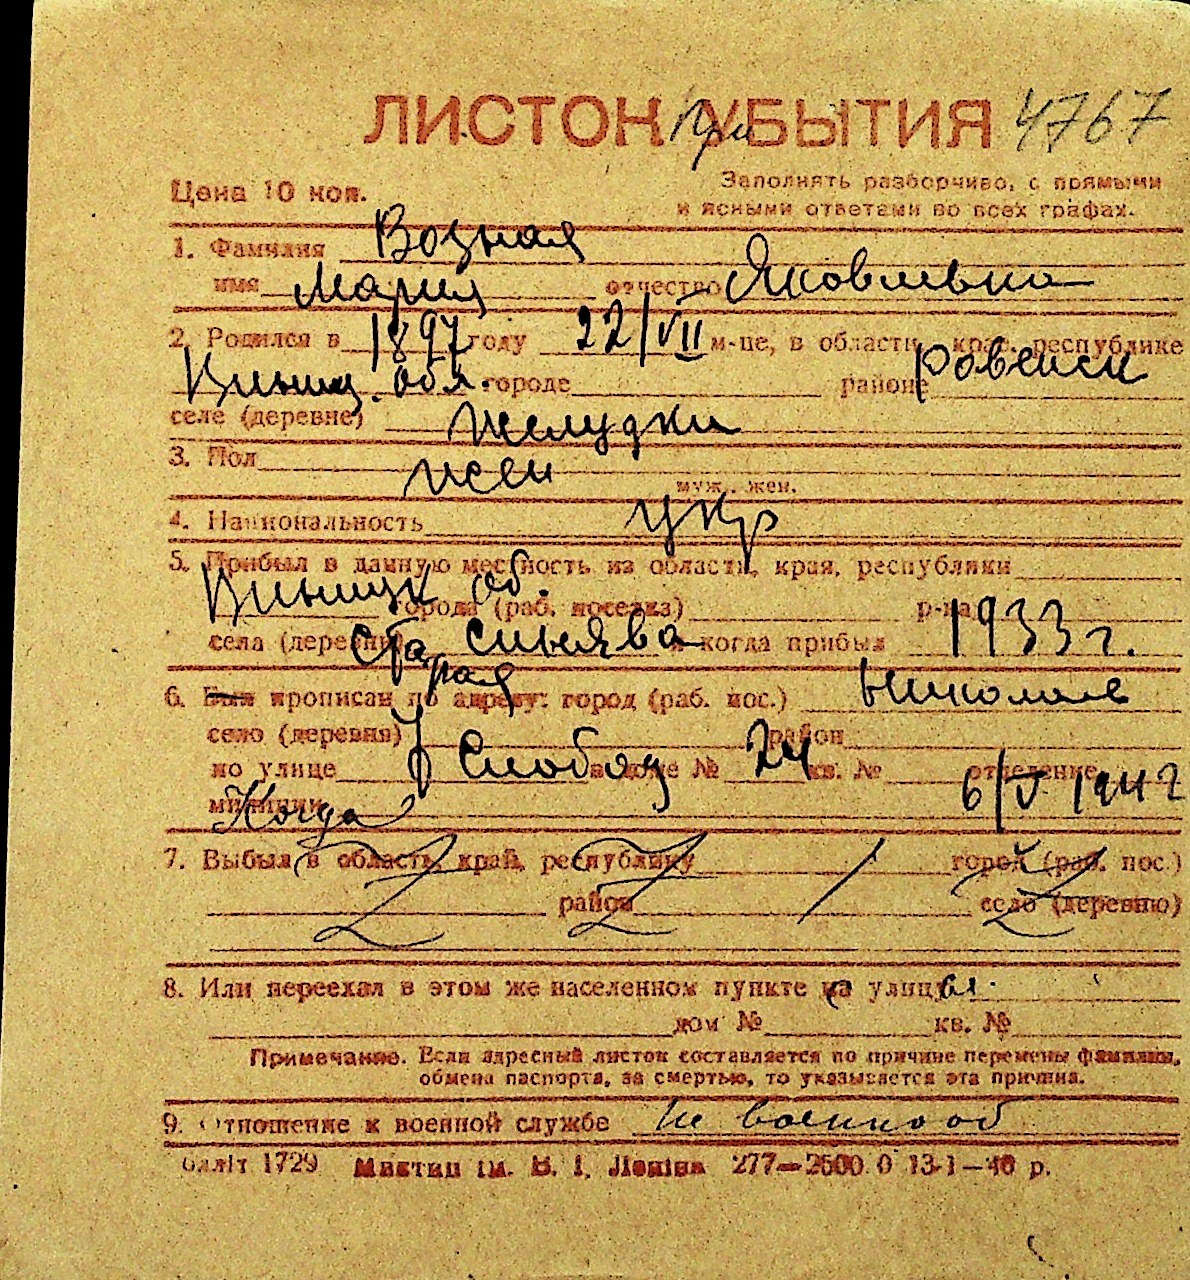 ЛИСТОК УБЫТИЯ При 4767
Цена 10 коп.
Заполнять разборчиво, с прямыми
и ясными ответами во всех графах.
1. Фамилия Возная
имя Мария отчество Яковлевна
2. Родился в 1897 году 22/VII м-це, в области, крае, республике
Винниц. обл. городе районе Ровенск
селе (деревне) Желудки
3. Пол жен
муж., жен.
4. Национальность укр
5. Прибыл в данную местность из области, края, республики
Винницк об. города (раб. поселка) р-на
села (деревни) Старая Синява и когда прибыл 1933 г.
6. Был прописан по адресу: город (раб. пос.) Николаев
село (деревня) район
по улице Слобод в доме № 24 кв. № отделение
милиции Когда 6/V 1941 г
7. Выбыл в область, край, республику город (раб. пос.)
район село (деревню)
8. Или переехал в этом же населенном пункте на улицу
дом № кв. №
Примечание. Если адресный листок составляется по причине перемены фамилии,
обмена паспорта, за смертью, то указывается эта причина.
9. Отношение к военной службе не военнооб
Облліт 1729 Миктип ім. В. І. Леніна 277—2600.0 13-1—40 р.